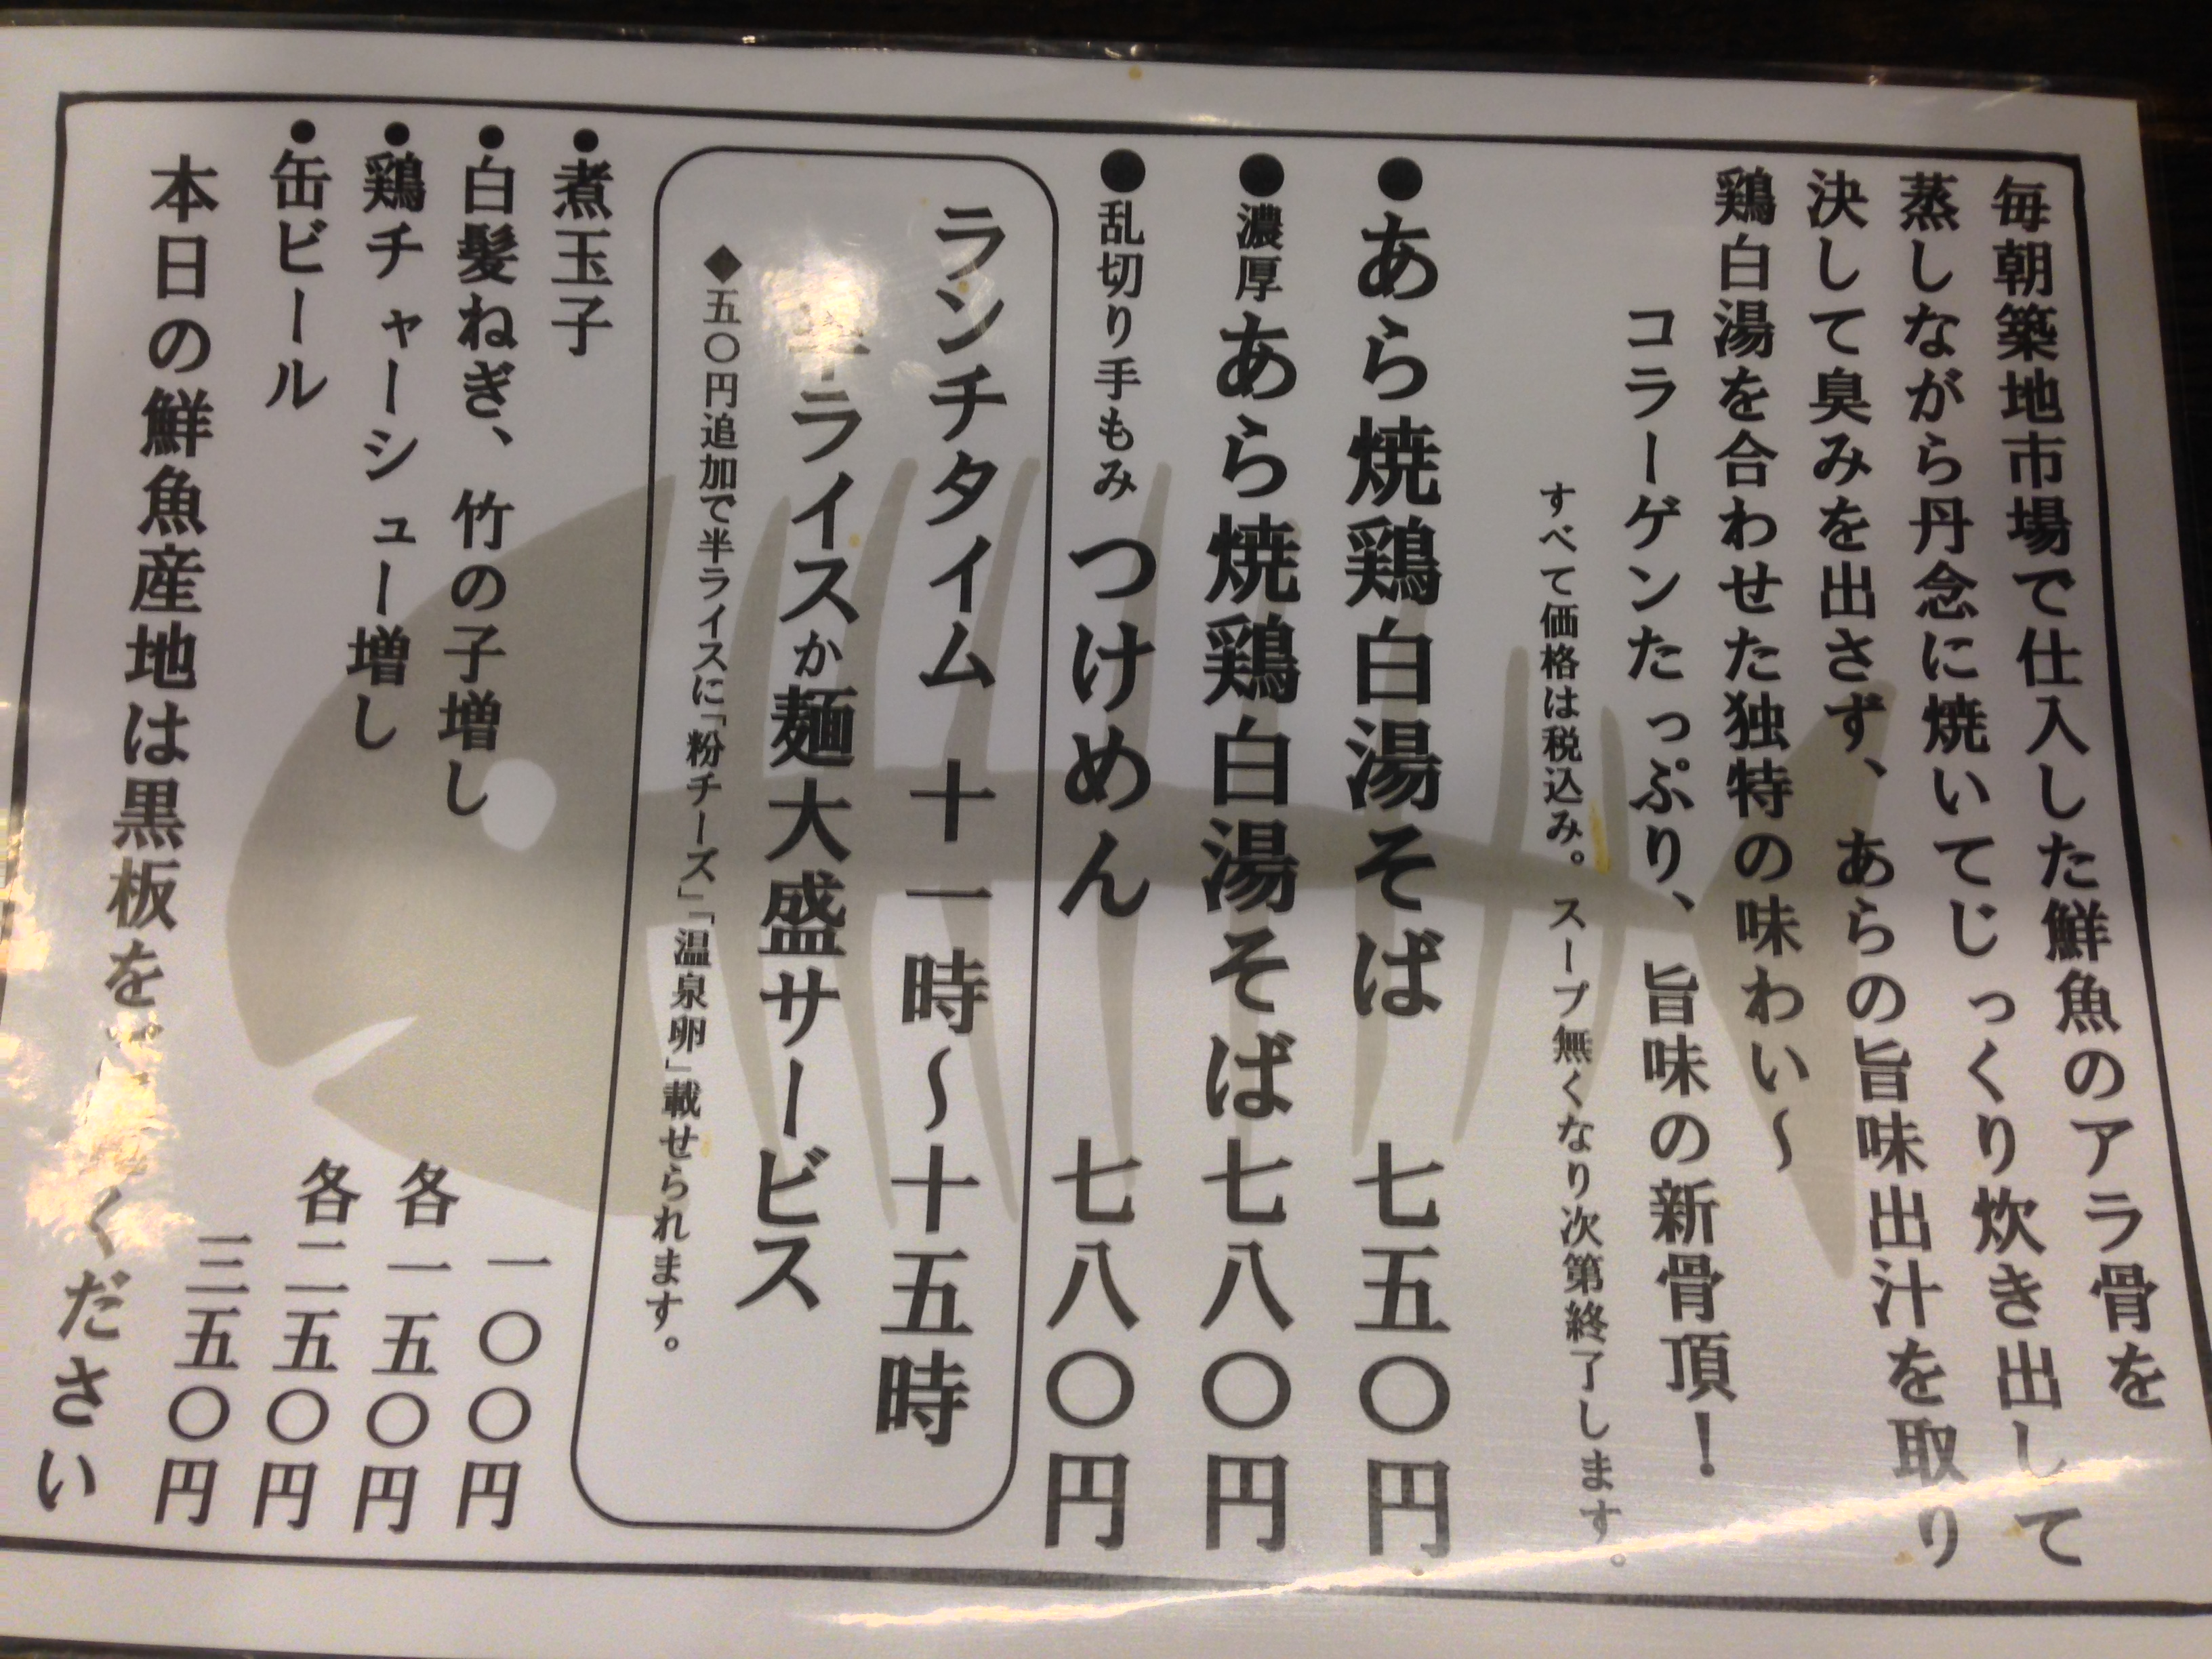 毎朝築地市場で仕入した鮮魚のアラ骨を
蒸しながら丹念に焼いてじっくり炊き出して
決して臭みを出さず、あらの旨味出汁を取り
鶏白湯を合わせた独特の味わい～
コラーゲンたっぷり、旨味の新骨頂！
すべて価格は税込み。スープ無くなり次第終了します。
●あら焼鶏白湯そば 七五〇円
●濃厚あら焼鶏白湯そば 七八〇円
●乱切り手もみ つけめん 七八〇円
ランチタイム 十一時～十五時
半ライスか麺大盛サービス
◆五〇円追加で半ライスに「粉チーズ」「温泉卵」載せられます。
●煮玉子 一〇〇円
●白髪ねぎ、竹の子増し 各一五〇円
●鶏チャーシュー増し 各二五〇円
●缶ビール 三五〇円
本日の鮮魚産地は黒板を ください